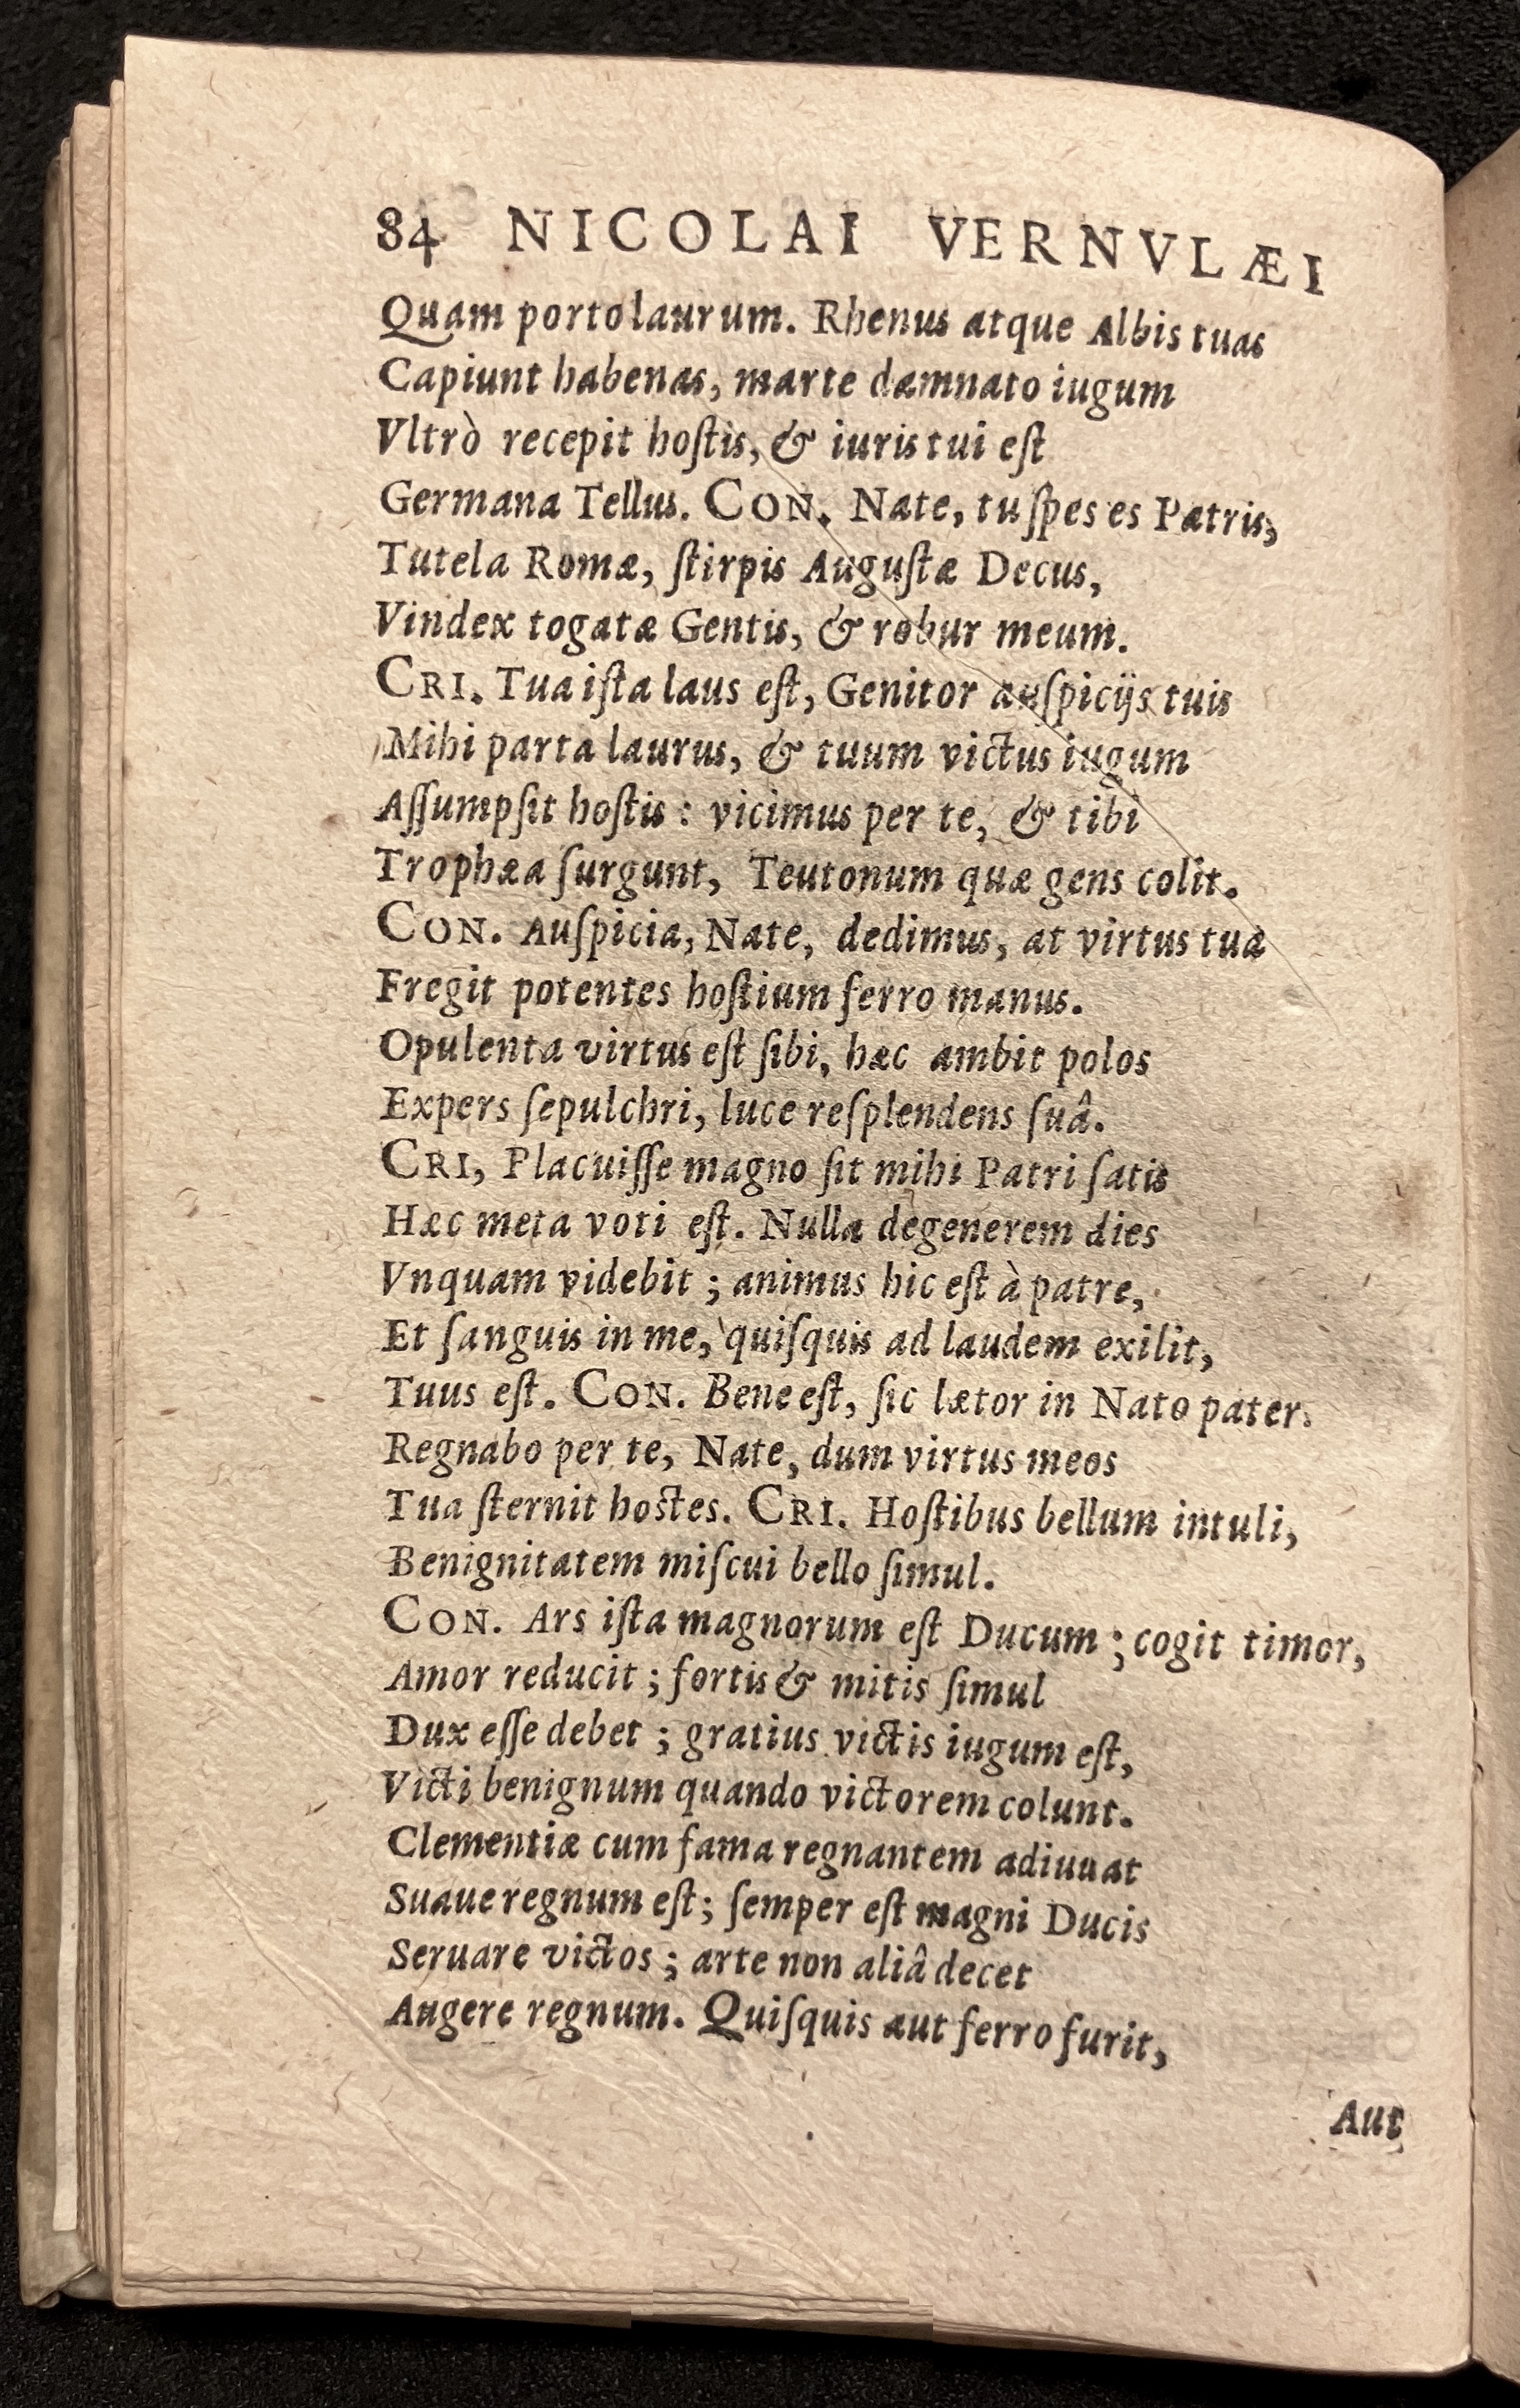 84 NICOLAI VERNVLÆI
Quam porto laurum. Rhenus atque Albis tuas
Capiunt habenas, marte damnato iugum
Vltrò recepit hoſtis, & iuris tui eſt
Germana Tellus. CON. Nate, tu ſpes es Patris,
Tutela Romæ, ſtirpis Auguſtæ Decus,
Vindex togatæ Gentis, & robur meum.
CRI. Tua iſta laus eſt, Genitor auſpicijs tuis
Mihi parta laurus, & tuum victus iugum
Aſſumpſit hoſtis : vicimus per te, & tibi
Trophæa ſurgunt, Teutonum quæ gens colit.
CON. Auſpicia, Nate, dedimus, at virtus tua
Fregit potentes hoſtium ferro manus.
Opulenta virtus eſt ſibi, hæc ambit polos
Expers ſepulchri, luce reſplendens ſuâ.
CRI, Placuiſſe magno ſit mihi Patri ſatis
Hæc meta voti eſt. Nulla degenerem dies
Vnquam videbit ; animus hic eſt à patre,
Et ſanguis in me, quiſquis ad laudem exilit,
Tuus eſt. CON. Bene eſt, ſic lætor in Nato pater.
Regnabo per te, Nate, dum virtus meos
Tua ſternit hoſtes. CRI. Hoſtibus bellum intuli,
Benignitatem miſcui bello ſimul.
CON. Ars iſta magnorum eſt Ducum ; cogit timor,
Amor reducit ; fortis & mitis ſimul
Dux eſſe debet ; gratius victis iugum eſt,
Victi benignum quando victorem colunt.
Clementiæ cum fama regnantem adiuuat
Suaue regnum eſt; ſemper eſt magni Ducis
Seruare victos ; arte non aliâ decet
Augere regnum. Quiſquis aut ferro furit,
Aut